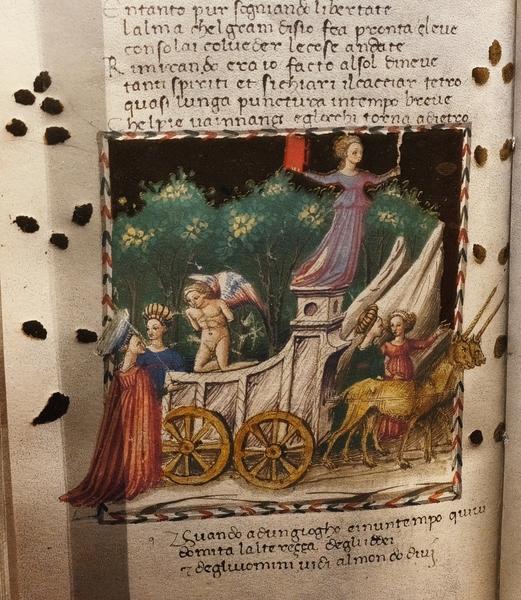 Entanto pur sogniando libertate
lalma chelgram disio fea pronta eleue
consolai colueder lecose andate
Rimirando eraio facto alsol dineue
tanti spiriti et sichiari ilcarciar tetro
quasi lunga punctura intempo breue
Chelpie uainnanci eglocchi torna adietro
Quando adungiogho einuntempo quiui
domita lalterecça deglidei
7 degliuomini uidi almondo diuj